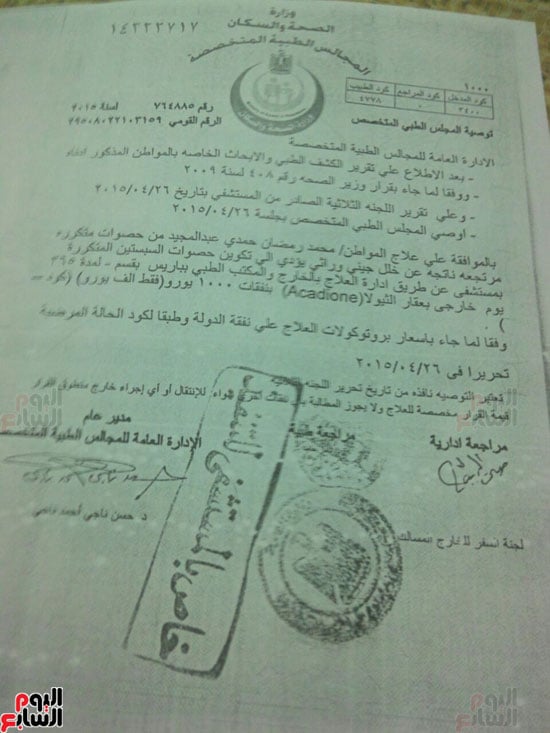 وزارة
الصحة والسكان
المجالس الطبية المتخصصة
١٤٢٣٢٧١٧
١٠٠٠
كود المدخل كود المراجع كود الطبيب
٣٤٠٠ ٠ ٤٧٧٨
رقم ٧٦٤٨٨٥ لسنة ٢٠١٥
توصية المجلس الطبي المتخصص الرقم القومي ٢٩٥٠٨٠٢٢١٠٣١٥٩
الادارة العامة للمجالس الطبية المتخصصة
- بعد الاطلاع علي تقرير الكشف الطبي والابحاث الخاصه بالمواطن المذكور
- ووفقا لما جاء بقرار وزير الصحه رقم ٤٠٨ لسنة ٢٠٠٩
- وعلي تقرير اللجنه الثلاثية الصادر من المستشفي بتاريخ ٢٠١٥/٠٤/٢٦
- اوصي المجلس الطبي المتخصص بجلسة ٢٠١٥/٠٤/٢٦
بالموافقة علي علاج المواطن/ محمد رمضان حمدي عبدالمجيد من حصوات متكرره
مرتجعه ناتجه عن خلل جيني وراثي يؤدي الي تكوين حصوات السيستين المتكررة
بمستشفى عن طريق ادارة العلاج بالخارج والمكتب الطبي بباريس بقسم - لمدة
يوم خارجى بعقار الثيولا(Acadione) بنفقات ١٠٠٠ يورو(فقط الف يورو) (كود
. (
وفقا لما جاء باسعار بروتوكولات العلاج علي نفقة الدولة وطبقا لكود الحالة المرضية
تحريرا فى ٢٠١٥/٠٤/٢٦
تعتبر التوصيه نافذه من تاريخ تحرير اللجنه
قيمة القرار مخصصة للعلاج ولا يجوز المطالبة للإنتقال أو أي إجراء خارج منطوق القرار
مراجعة ادارية مراجعة طبية مدير عام
الإدارة العامة للمجالس الطبية المتخصصة
د. حسن ناجي أحمد
لجنة السفر للخارج
خاص بالمستشفى
اليوم السابع
اليوم السابع